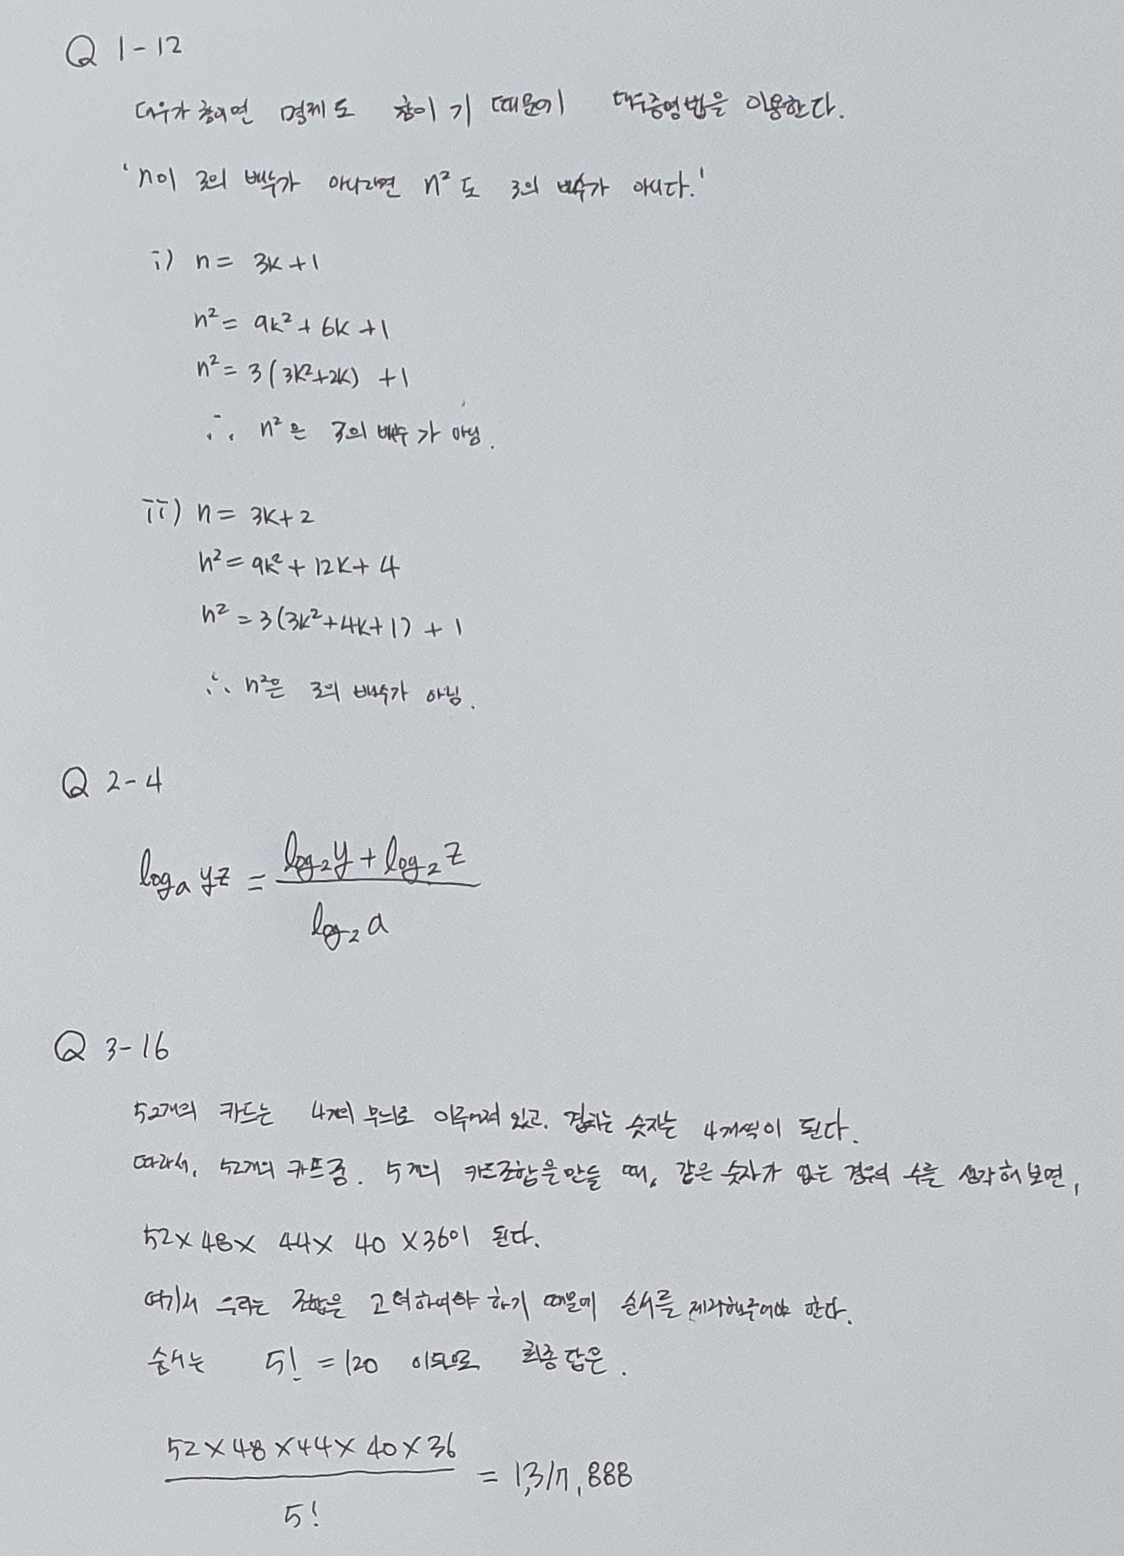 Q 1-12
대우가 참이면 명제도 참이기 때문에 대우증명법을 이용한다.
'n이 3의 배수가 아니라면 n²도 3의 배수가 아니다.'
i) n = 3k+1
n² = 9k² + 6k + 1
n² = 3(3k²+2k) + 1
∴ n²은 3의 배수가 아님.
ii) n = 3k+2
n² = 9k² + 12k + 4
n² = 3(3k²+4k+1) + 1
∴ n²은 3의 배수가 아님.
Q 2-4
logₐ yz = (log₂y + log₂z) / log₂a
Q 3-16
52개의 카드는 4개의 무늬로 이루어져 있고, 겹치는 숫자는 4개씩이 된다.
따라서, 52개의 카드중, 5개의 카드조합을 만들 때, 같은 숫자가 없는 경우의 수를 생각해보면,
52 × 48 × 44 × 40 × 36이 된다.
여기서 우리는 조합을 고려하여야 하기 때문에 순서를 제외해주어야 한다.
순서는 5! = 120 이므로 최종 답은.
(52 × 48 × 44 × 40 × 36) / 5! = 1,317,888